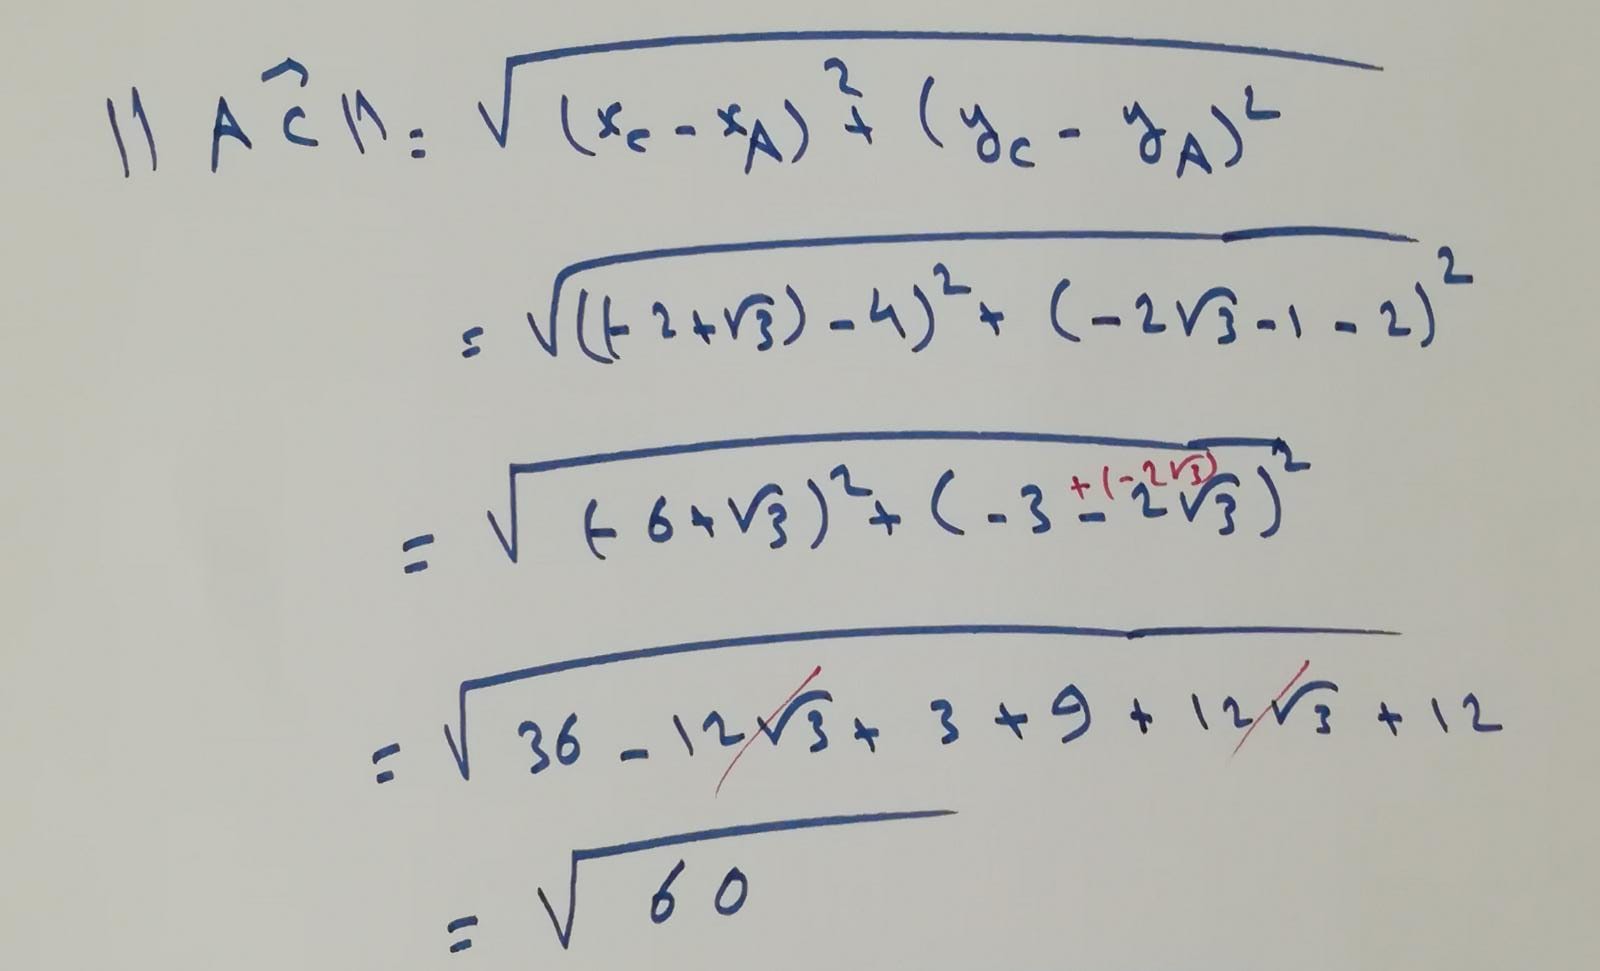 ||AC|| = √((x_C - x_A)² + (y_C - y_A)²)
= √(((-2+√3)-4)² + (-2√3-1-2)²)
= √((-6+√3)² + (-3-2√3)²) +(-2√3)
= √(36 - 12√3 + 3 + 9 + 12√3 + 12)
= √60